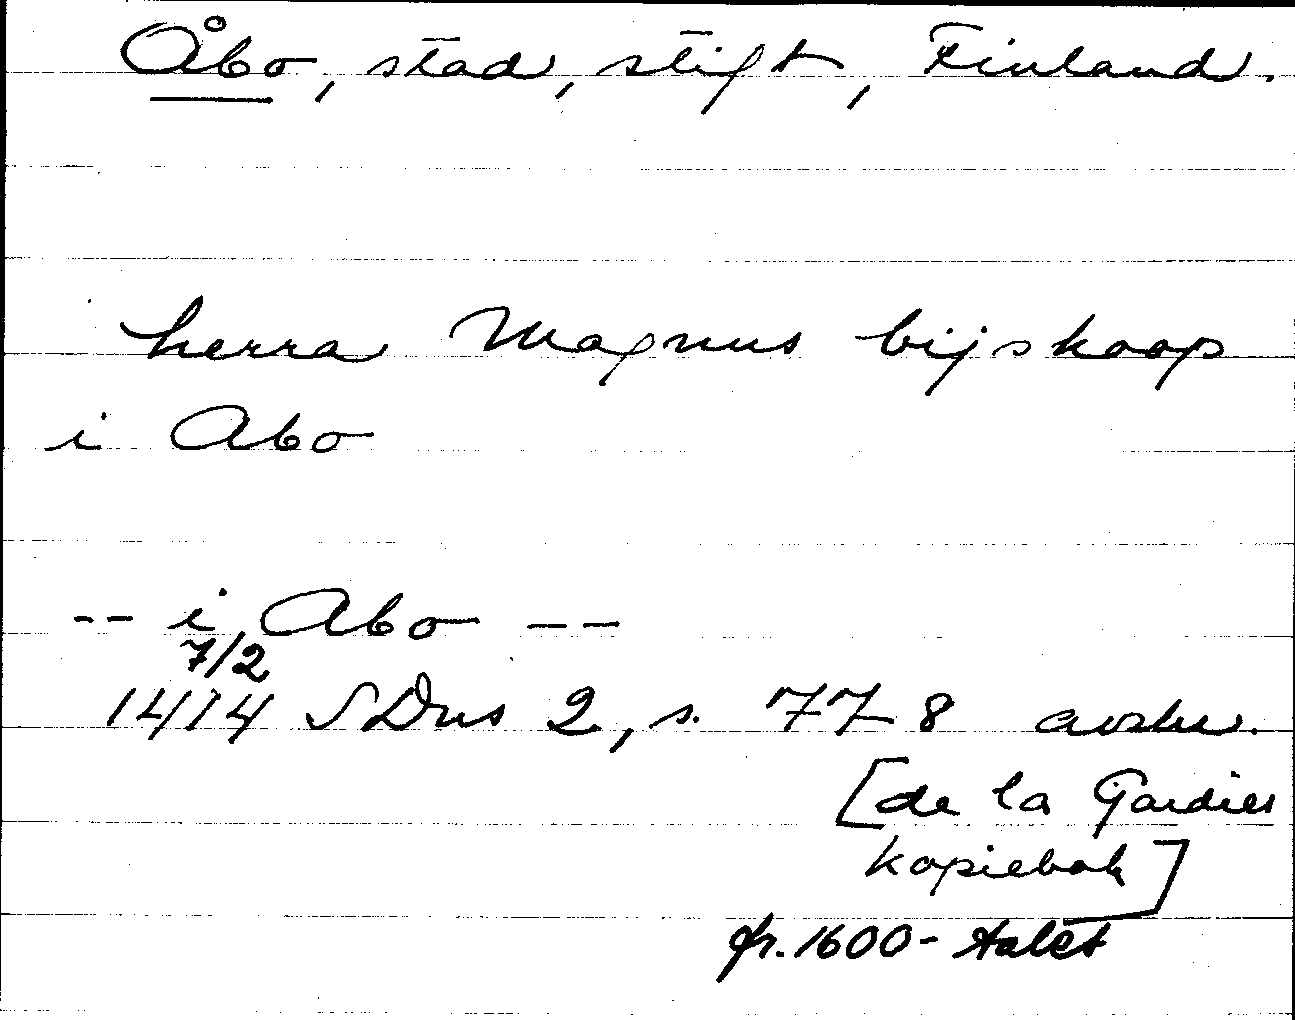 Åbo, stad, stift, Finland.
herra Magnus bijskoop
i Abo
-- i Abo --
7/2
1414 SDns 2, s. 778 avskr.
[de la Gardies
kopiebok]
fr. 1600-talet